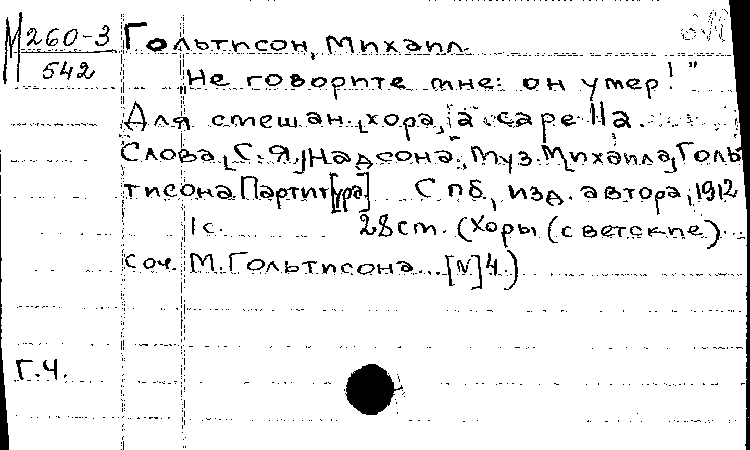 М 260-3 Гольтисон, Михаил
542
"Не говорите мне: он умер!"
Для смешан. хора, a capella.
Слова [С. Я.] Надсона, Муз. М[ихаила] Голь
тисона Партит[ура] Спб, изд. автора, 1912
1 с. 28 ст. (Хоры (светские)
соч. М. Гольтисона... [№] 4)
Г.Ч.